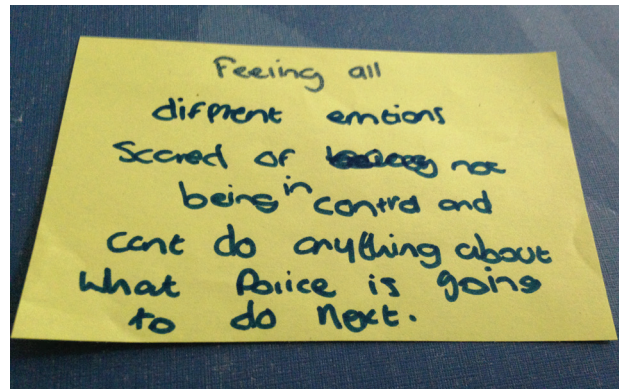 Feeling all
diffrent emtions
Scared of not
being in control and
cant do anything about
what Police is going
to do next.